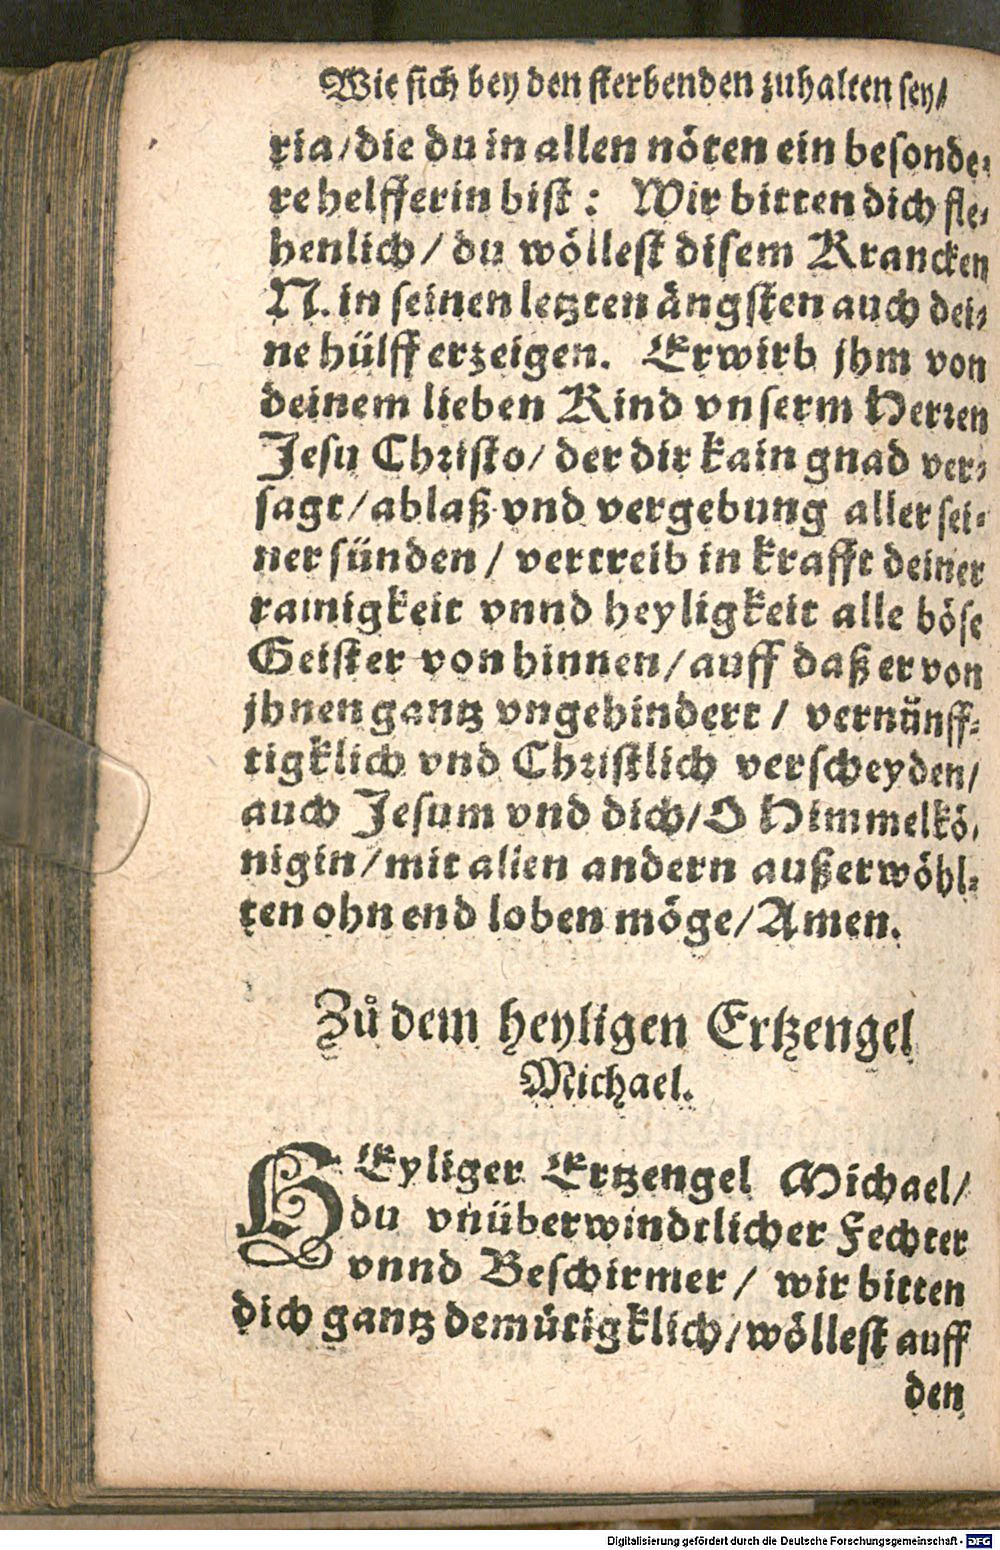 Wie sich bey den sterbenden zuhalten sey/
ria/die du in allen nöten ein besonde⸗
re helfferin bist: Wir bitten dich fle⸗
henlich/ du wöllest disem Krancken
N. in seinen letzten ängsten auch dei⸗
ne hülff erzeigen. Erwirb jhm von
deinem lieben Kind vnserm Herren
Jesu Christo/ der dir kain gnad ver⸗
sagt/ablaß vnd vergebung aller sei⸗
ner sünden/ vertreib in krafft deiner
rainigkeit vnnd heyligkeit alle böse
Geister von hinnen/auff daß er von
jhnen gantz vngehindert/ vernünff⸗
tigklich vnd Christlich verscheyden/
auch Jesum vnd dich/O Himmelkö⸗
nigin/mit allen andern außerwöhl⸗
ten ohn end loben möge/Amen.
Zů dem heyligen Ertzengel
Michael.
HEyliger Ertzengel Michael/
du vnüberwindtlicher Fechter
vnnd Beschirmer/ wir bitten
dich gantz demütigklich/wöllest auff
den
Digitalisierung gefördert durch die Deutsche Forschungsgemeinschaft - DFG